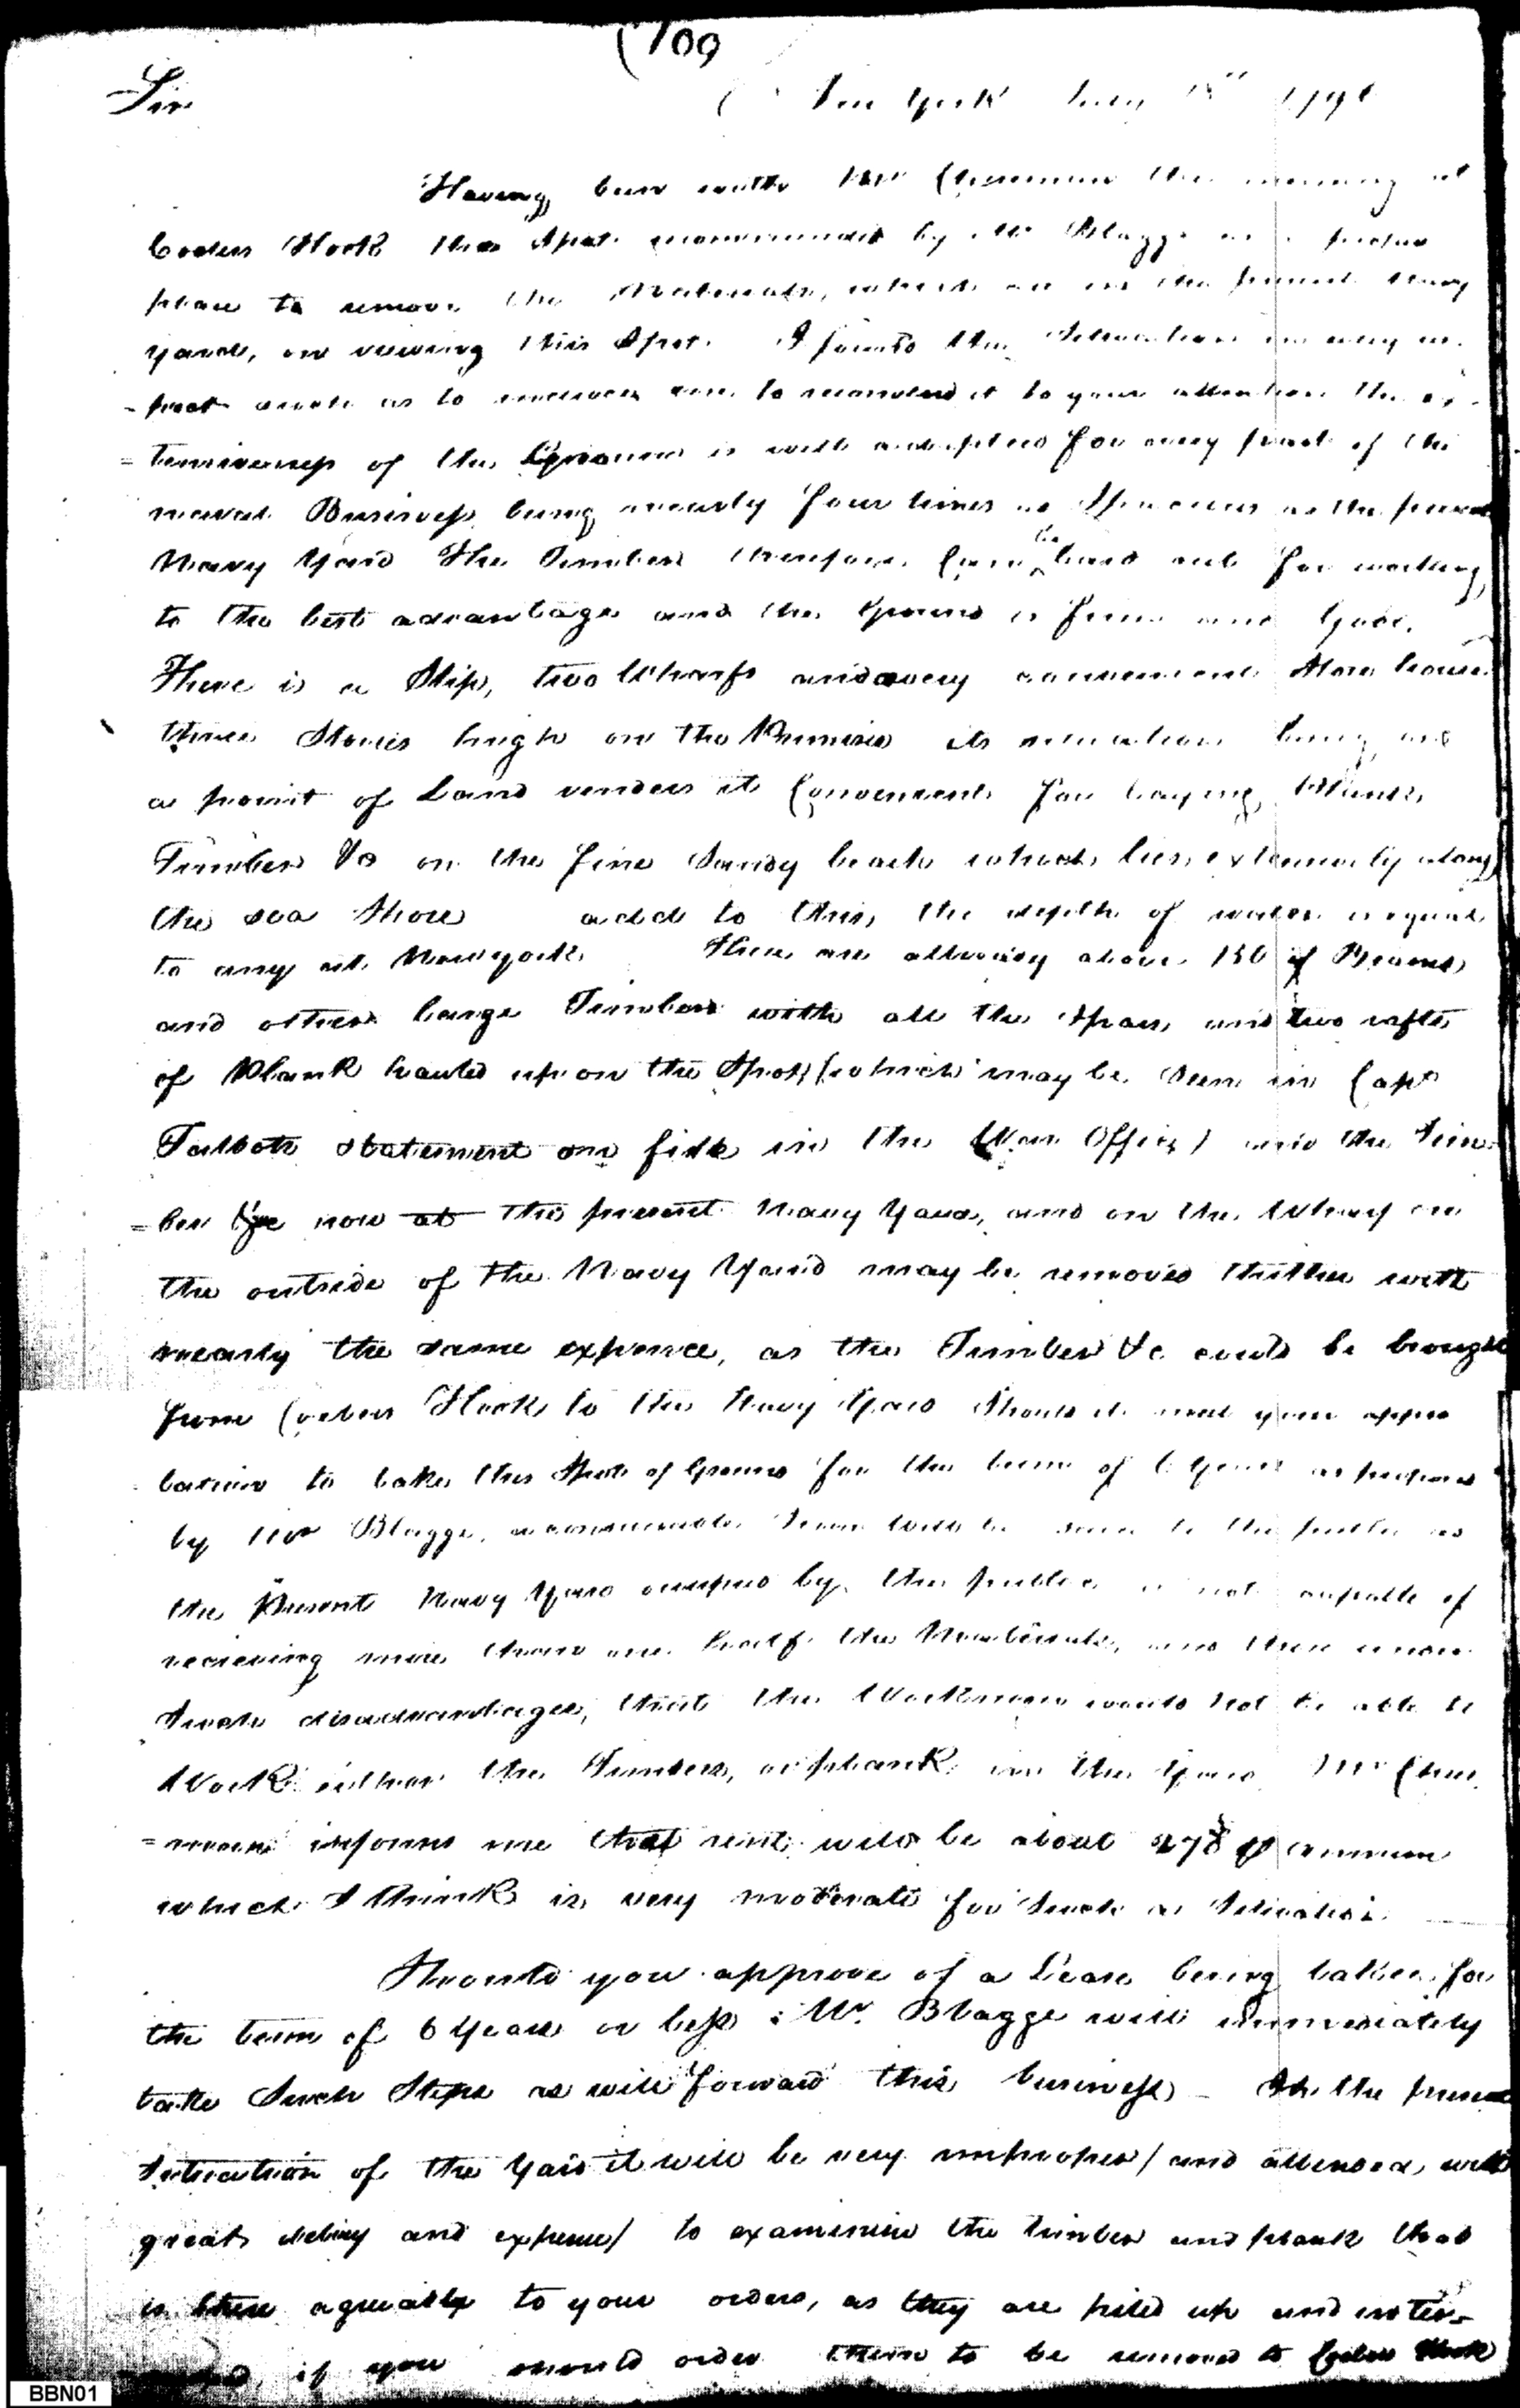 (109
Sir
New York July 1796
Having been with Mr Cheesman this morning at
Corlers Hook the Spot recommended by Mr Blagge as a proper
place to remove the Materials, which are in the present Navy
Yard, on viewing this Spot. I found the Situation in every res-
-pect such as to induce me to recommend it to your attention the ex-
=tensiveness of the Ground is well adapted for every part of the
naval Business, being nearly four times as Spacious as the present
Navy Yard The Timbers therefore Can be laid out for working
to the best advantage and the Ground is firm and Good.
There is a Slip, two Wharfs and a very convenient Store house
three Stories high on the Premises its situation being on
a point of Land renders it Convenient for laying Plank,
Timber &c on the fine Sandy beach which lies extensively along
the sea Shore add to this, the depth of water is equal
to any at Newyork There are already above 150 of Beams
and other large Timbers with all the Spars and two rafts
of Plank hauled up on the Spot (which may be seen in Capt
Talbots statement on file in the War Office) and the Tim-
=ber &c now at the present Navy Yard, and on the Wharf on
the outside of the Navy Yard may be removed thither with
nearly the same expence, as the Timber &c could be brought
from Corlers Hook to the Navy Yard Should it meet your appro
bation to take this Spot of Ground for the term of 6 Years as proposed
by Mr Blagge, a considerable will be to the public as
the Present Navy Yard occupied by the public is not capable of
recieving more than one half the Materials, and then under
Such disadvantages, that the Workmen would not be able to
Work either the Timbers, or plank in the Yard Mr Chees
=man informs me that rent will be about 278 p annum
which I think is very moderate for Such a Situation.
Should you approve of a Lease being taken for
the term of 6 Years or less : Mr. Blagge will immediately
take Such Steps as will forward this business – In the present
Situation of the Yard it will be very improper / and attended with
great delay and expence / to examine the timber and plank that
is there agreeably to your orders, as they are piled up and inter-
if you should order them to be removed to Corlers Hook
BBN01